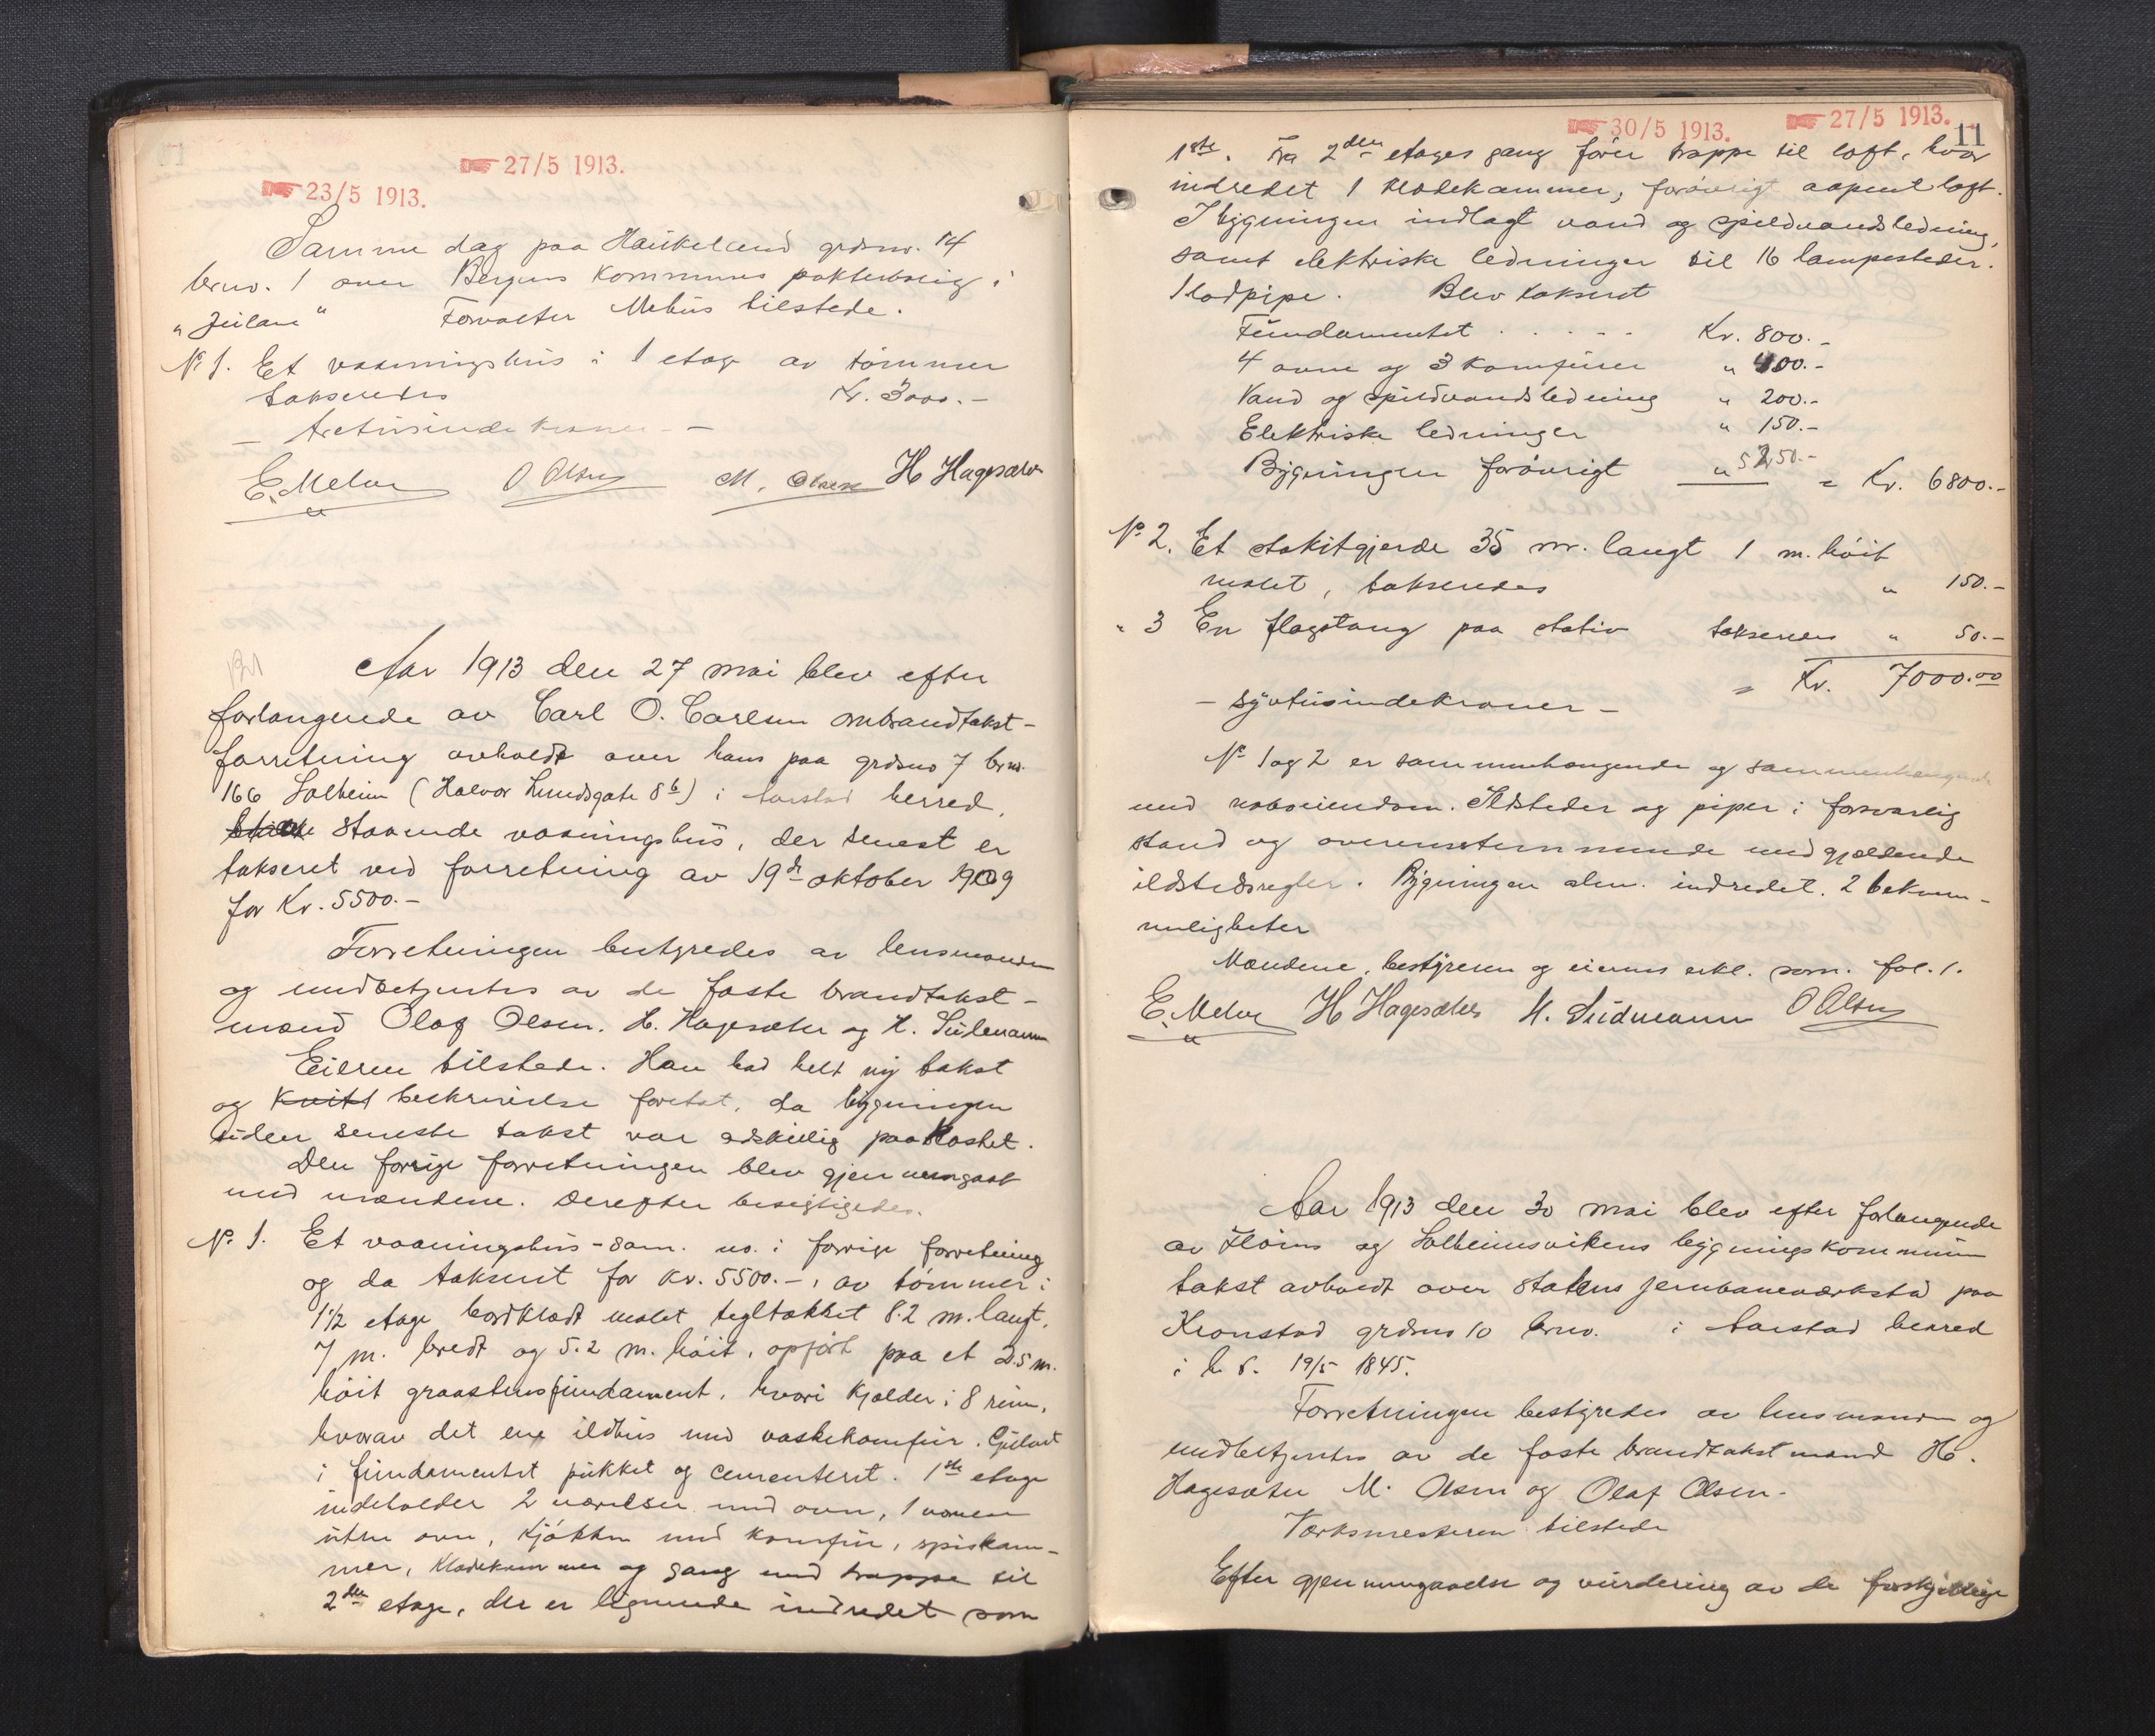 27/5 1913.
23/5 1913.
Samme dag paa Haukeland grdsno. 14
brno. 1 over Bergens kommunes pakterbolig i
"Jülan" Forvalter Mehus tilstede.
No 1. Et vaaningshus i 1 etage av tømmer
takseredes Kr. 3000.-
- Tretusinde kroner -
E. Melvær O Olsen M. Olsen H Hagesæter
Aar 1913 den 27 mai blev efter
forlangende av Carl O. Carlsen ombrandtakst-
forretning avholdt over hans paa grdsno 7 brno.
166 Solheim (Halvor Lundsgate 8b) i Aarstad herred
staaende vaaningshus, der senest er
takseret ved forretning av 19de oktober 1909
for Kr. 5500.-
Forretningen bestyredes av lensmanden
og medbetjentes av de faste brandtakst-
mænd Olaf Olsen. H. Hagesæter og H. Südmann
Eieren tilstede. Han bad helt ny takst
og beskrivelse foretat, da bygningen
siden seneste takst var adskillig paakostet.
Den forrige forretningen blev gjennemgaat
med mændene. Derefter besigtigedes.
No. 1. Et vaaningshus - sam. no. i forrige forretning
og da takseret for Kr. 5500.-, av tømmer i
1 1/2 etage bordklædt malet tegltækket 8.2 m. langt,
7 m. bredt og 5.2 m. høit, opført paa et 2.5 m.
høit graastensfundament, hvori kjælder i 8 rum,
hvorav det ene ildhus med vaskekomfur. Gulvet
i fundamentet pukket og cementeret. 1ste etage
indeholder 2 værelser med ovn, 1 værelse
uten ovn, kjøkken med komfur, spiskam-
mer, klædekammer og gang med trappe til
2den etage, der er lignende indredet som
30/5 1913. 27/5 1913.
11
1ste. Fra 2den etages gang fører trappe til loft, hvor
indredet 1 klædekammer, forøvrigt aapent loft.
I bygningen indlagt vand og spildvandsledning,
samt elektriske ledninger til 16 lampesteder.
1 lodpipe. Blev takseret
Fundamentet . . . . . Kr. 800.-
4 ovne og 3 komfurer " 400.-
Vand og spildvandsledning " 200.-
Elektriske ledninger " 150.-
Bygningen forøvrigt " 5250.- = Kr. 6800.-
No 2. Et stakitgjerde 35 m. langt 1 m. høit
malet, takseredes " 150.-
" 3 En flagstang paa stativ takseredes " 50.-
= Kr. 7000.00
- Syvtusindekroner -
No 1 og 2 er sammenhængende og sammenhængende
med naboeiendom. Ildsteder og piper i forsvarlig
stand og overensstemmende med gjældende
ildstedsregler. Bygningen alm. indredet. 2 bekvem-
meligheter
Mændene, bestyreren og eierens erkl. som. fol. 1.
E. Melvær H Hagesæter H. Südmann O Olsen
Aar 1913 den 30 mai blev efter forlangende
av Fløens og Solheimsvikens bygningskommission
takst avholdt over Statens Jernbaneværksted paa
Kronstad grdsno 10 brno. i Aarstad herred
i h. t. 19/5 1845.
Forretningen bestyredes av lensmanden og
medbetjentes av de faste brandtakstmænd H.
Hagesæter M. Olsen og Olaf Olsen.
Værksmesteren tilstede
Efter gjennemgaaelse og vurdering av de forskjellige